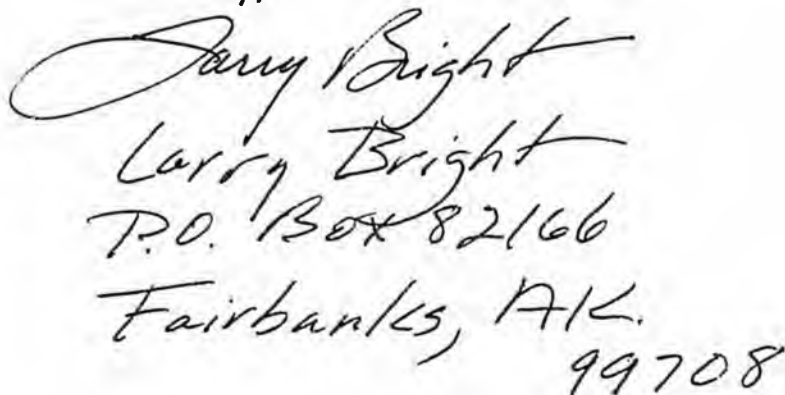 Larry Bright
Larry Bright
P.O. Box 82166
Fairbanks, AK.
99708